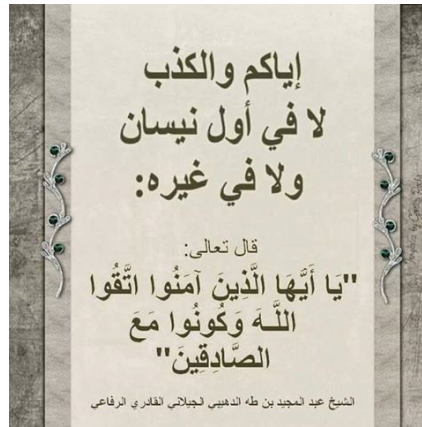 إياكم والكذب
لا في أول نيسان
ولا في غيره:
قال تعالى:
"يَا أَيُّهَا الَّذِينَ آمَنُوا اتَّقُوا
اللَّـهَ وَكُونُوا مَعَ
الصَّادِقِينَ"
الشيخ عبد المجيد بن طه الدهيبي الجيلاني القادري الرفاعي